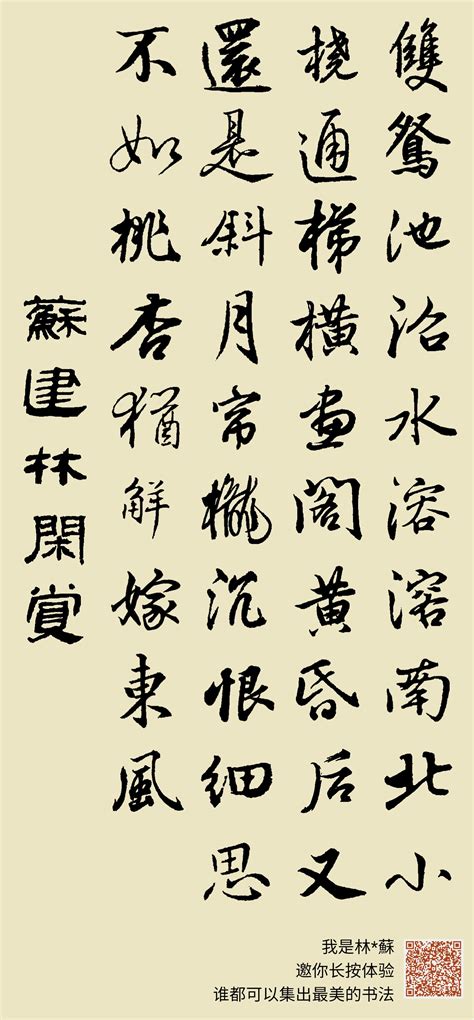 雙鴛池沼水溶溶南北小
桡通梯橫畫阁黄昏后又
還是斜月帘櫳沉恨细思
不如桃杏猶解嫁東風
蘇建林閑賞
我是林*蘇
邀你长按体验
谁都可以集出最美的书法